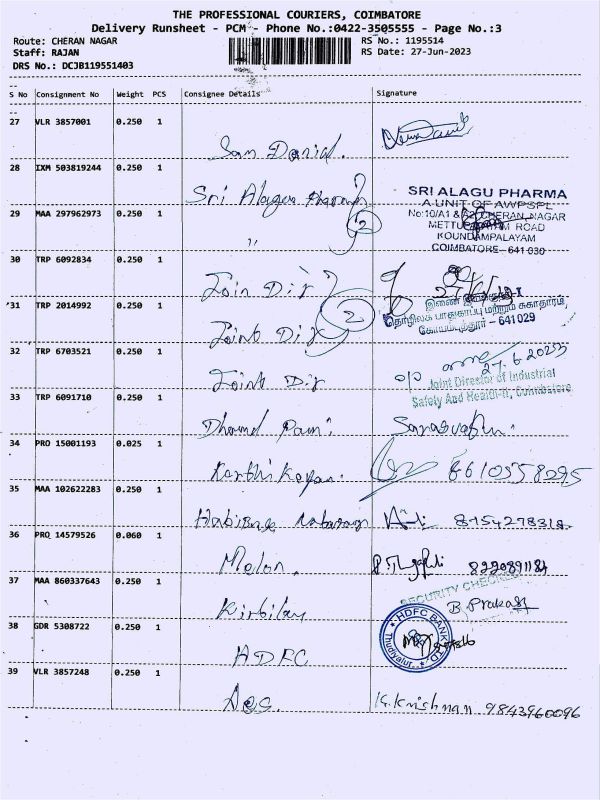 THE PROFESSIONAL COURIERS, COIMBATORE
Delivery Runsheet - PCM - Phone No.:0422-3505555 - Page No.:3
Route: CHERAN NAGAR RS No.: 1195514
Staff: RAJAN RS Date: 27-Jun-2023
DRS No.: DCJB119551403
S No Consignment No Weight PCS Consignee Details Signature
27 VLR 3857001 0.250 1
Sam Danial.
28 IXM 503819244 0.250 1
Sri Alagu Pharmacy
SRI ALAGU PHARMA
A UNIT OF AWPSPL
29 MAA 297962973 0.250 1
2
No:10/A1 & A2, CHERAN NAGAR
METTUPALAYAM ROAD
KOUNDAMPALAYAM
COIMBATORE- 641 030
"
30 TRP 6092834 0.250 1
Join Dir
27/6/23
31 TRP 2014992 0.250 1
2
இணை இயக்குநர்-I
தொழிலக பாதுகாப்பு மற்றும் சுகாதாரம்,
கோயம்புத்தூர் – 641 029
Joint Dir
32 TRP 6703521 0.250 1
27.6.2023
Joint Dir
o/o Joint Director of Industrial
Safety And Health-II, Coimbatore
33 TRP 6091710 0.250 1
34 PRO 15001193 0.025 1
Karthikeyan. 8610558095
35 MAA 102622283 0.250 1
8754278318
36 PRO 14579526 0.060 1
8220891184
37 MAA 860337643 0.250 1
SECURITY CHECKED
B. Prakash
38 GDR 5308722 0.250 1
HDFC BANK LTD
Thudiyalur
HDFC
39 VLR 3857248 0.250 1
K. Krishnan 9843960096